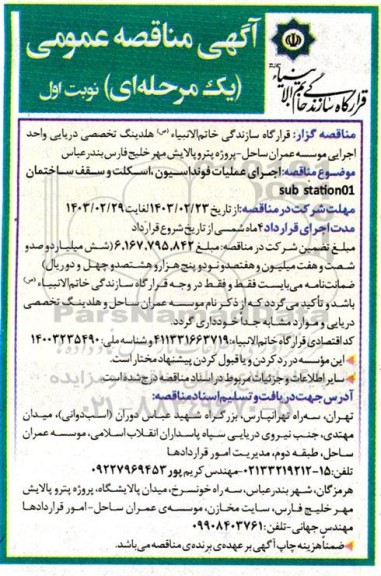 آگهی مناقصه عمومی
(یک مرحله‌ای) نوبت اول
قرارگاه سازندگی خاتم الانبیاء
مناقصه گزار: قرارگاه سازندگی خاتم‌الانبیاء (ص) هلدینگ تخصصی دریایی واحد
اجرایی موسسه عمران ساحل-پروژه پتروپالایش مهر خلیج فارس بندرعباس
موضوع مناقصه: اجرای عملیات فونداسیون، اسکلت و سقف ساختمان
sub station01
مهلت شرکت در مناقصه: از تاریخ ۱۴۰۳/۰۲/۲۳ لغایت ۱۴۰۳/۰۲/۲۹
مدت اجرای قرارداد ۴ ماه شمسی از تاریخ شروع قرارداد
مبلغ تضمین شرکت در مناقصه: مبلغ ۶،۱۶۷،۷۹۵،۸۴۲ (شش میلیارد و صد و
شصت و هفت میلیون و هفتصد و نود و پنج هزار و هشتصد و چهل و دو ریال)
ضمانت‌نامه می‌بایست فقط و فقط در وجه قرارگاه سازندگی خاتم‌الانبیاء (ص)
باشد و تأکید می‌گردد که از ذکر نام موسسه عمران ساحل و هلدینگ تخصصی
دریایی و موارد مشابه جداً خودداری گردد.
کد اقتصادی قرارگاه خاتم الانبیاء: ۴۱۱۳۳۱۶۶۳۷۱۹ و شناسه ملی: ۱۴۰۰۳۲۳۵۴۹۰
این مؤسسه در رد کردن و یا قبول کردن پیشنهاد مختار است.
سایر اطلاعات و جزئیات مربوط در اسناد مناقصه درج شده است.
آدرس جهت دریافت و تسلیم اسناد مناقصه:
تهران، سه‌راه تهرانپارس، بزرگراه شهید عباس دوران (اسب‌دوانی)، میدان
مهتدی، جنب نیروی دریایی سپاه پاسداران انقلاب اسلامی، موسسه عمران
ساحل، طبقه دوم، مدیریت امور قراردادها
تلفن: ۱۵-۰۲۱۳۳۳۱۹۲۱۲-مهندس کریم پور ۰۹۲۲۷۹۶۹۴۵۳
هرمزگان، شهر بندرعباس، سه راه خونسرخ، میدان پالایشگاه، پروژه پترو پالایش
مهر خلیج فارس، سایت مخازن، موسسه‌ی عمران ساحل-امور قراردادها
مهندس جهانی-تلفن: ۰۹۹۰۸۴۰۳۷۶۱
ضمناً هزینه چاپ آگهی بر عهده‌ی برنده‌ی مناقصه می‌باشد.
ParsNamadData